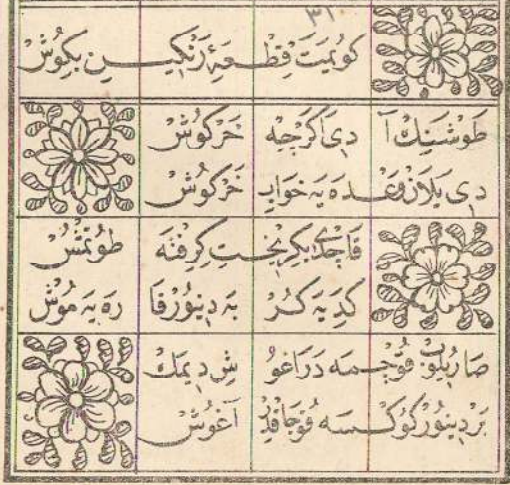 ٣١٠
كويمت قطعهٔ رنكين بكوش
طوشنك آ دى اكرچه خركوش
دى يلان وعده يه خواب خركوش
قاچدى بكريخت كرفته طوتمش
كديه كر به دينور فا ره يه موش
صاريلوب قوجمه در آغو ش ديمك
بر دينور كوكسه قوجاقدر آغوش